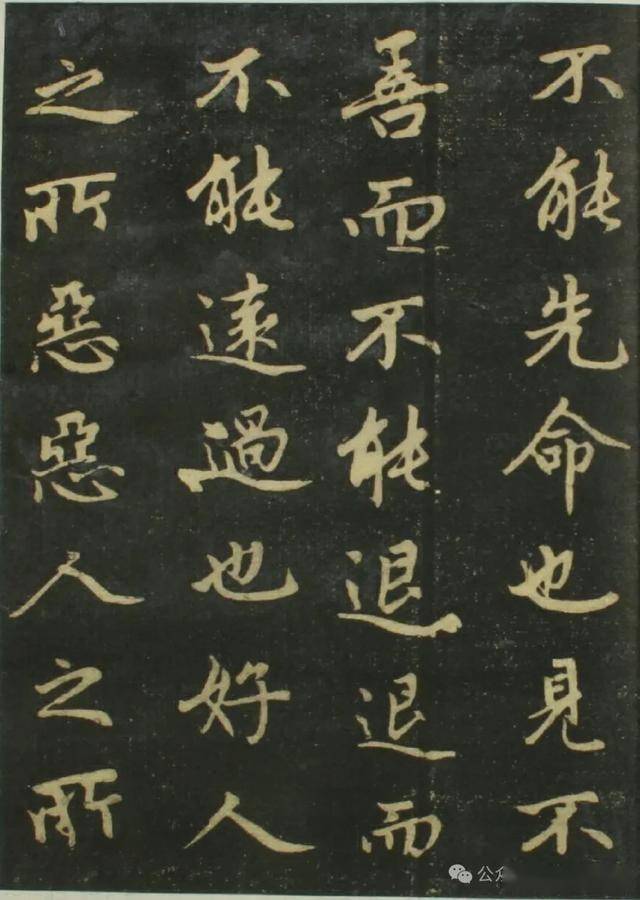 不能先命也見不
善而不能退退而
不能遠過也好人
之所惡惡人之所
公众